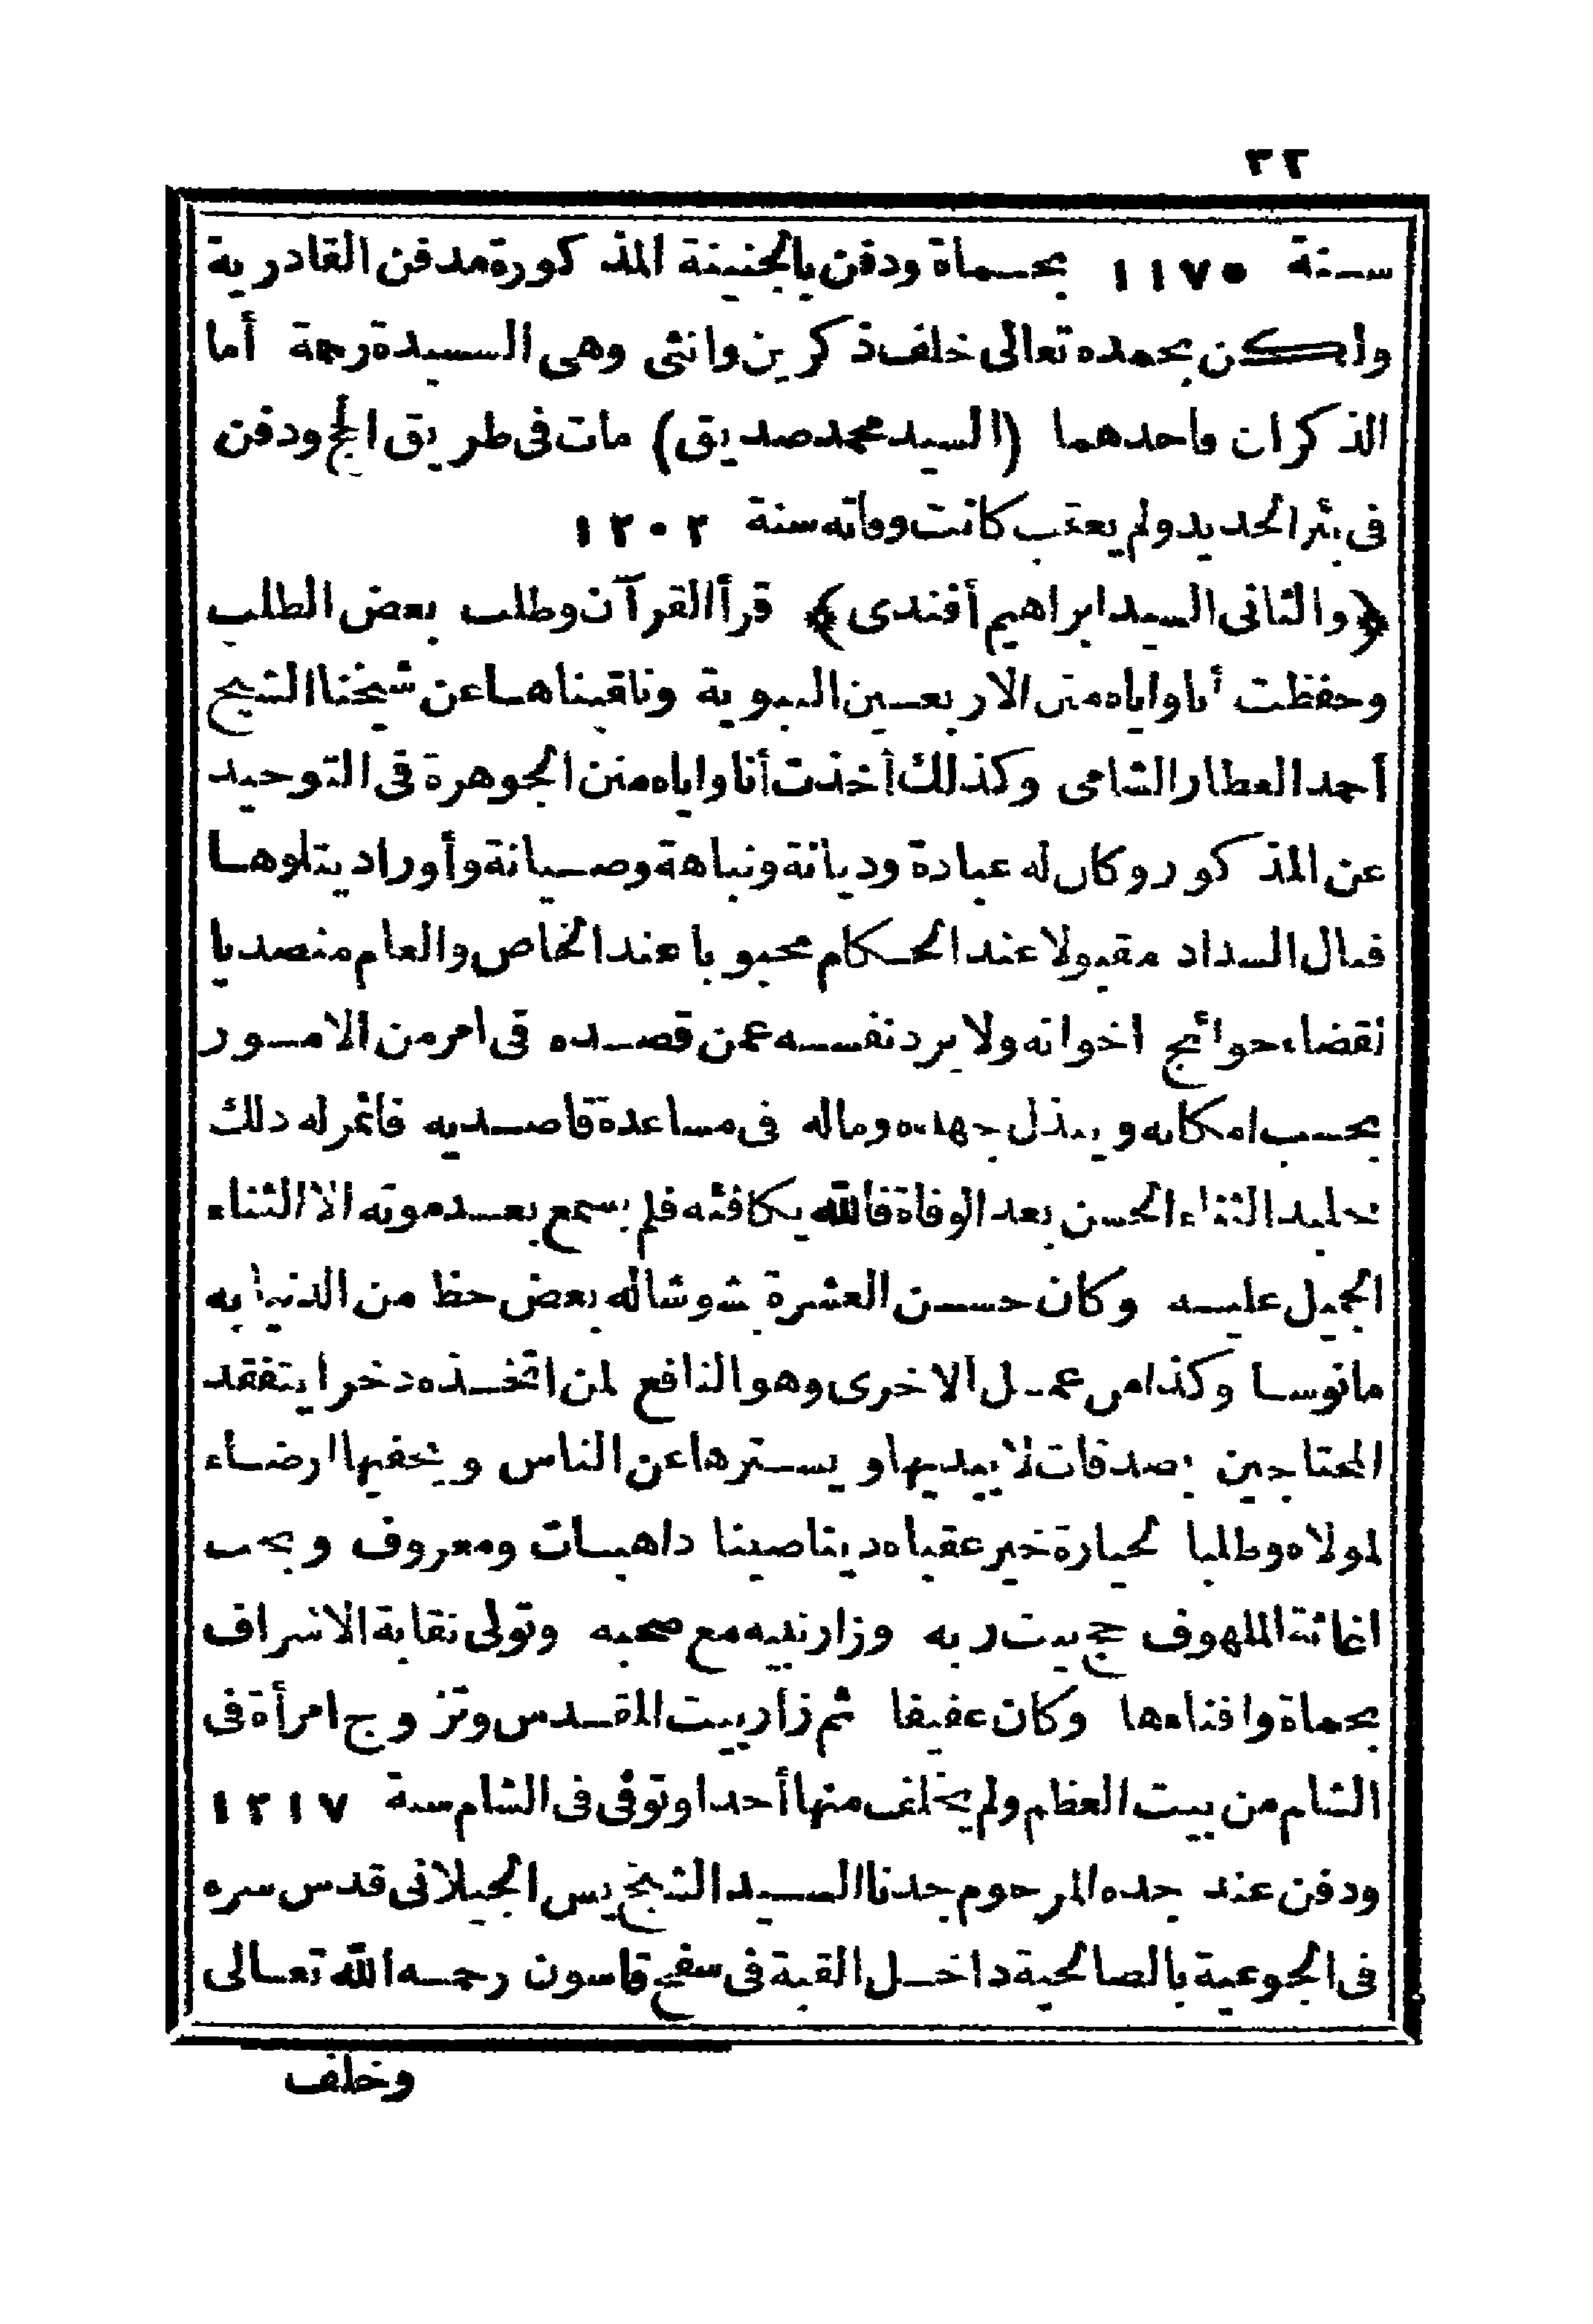 ٣٢
سنة ١١٧٥ بحماة ودفن بالجنينة المذكورة مدفن القادرية
ولكن بحمده تعالى خلف ذكرين وانثى وهى السيدة رحمة أما
الذكران فاحدهما (السيد محمد صديق) مات فى طريق الحج ودفن
فى بئر الحديد ولم يعقب كانت وفاته سنة ١٢٠٢
﴿والثانى السيد ابراهيم أفندى﴾ قرأ القرآن وطلب بعض الطلب
وحفظت أنا واياه متن الاربعين النبوية وتلقيناها عن شيخنا الشيخ
أحمد العطار الشامى وكذلك أخذت أنا واياه متن الجوهرة فى التوحيد
عن المذكور وكان له عبادة وديانة ونباهة وصيانة وأوراد يتلوها
فنال السداد مقبولا عند الحكام محبوبا عند الخاص والعام متصديا
لقضاء حوائج اخوانه ولا يرد نفسه عمن قصده فى امر من الامور
بحسب امكانه ويبذل جهده وماله فى مساعدة قاصديه فاثمر له ذلك
تخليد الثناء الحسن بعد الوفاة فالله يكافئه فلم يسمع بعد موته الا الثناء
الجميل عليه وكان حسن العشرة بشوشا له بعض حظ من الدنيا به
مانوسا وكذا من عمل الاخرى وهو النافع لمن اتخذه ذخرا يتفقد
المحتاجين بصدقات لا يبديها ويسترها عن الناس ويخفيها ارضاء
لمولاه وطلبا لحيازة خير عقباه دينا صينا ذا هبات ومعروف ويحب
اغاثة الملهوف حج بيت ربه وزار نبيه مع صحبه وتولى نقابة الاشراف
بحماة وافناءها وكان عفيفا ثم زار بيت المقدس وتزوج امرأة فى
الشام من بيت العظم ولم يخلف منها أحدا وتوفى فى الشام سنة ١٢١٧
ودفن عند جده المرحوم جدنا السيد الشيخ يس الجيلانى قدس سره
فى الجوعية بالصالحية داخل القبة فى سفح قاسون رحمه الله تعالى
وخلف